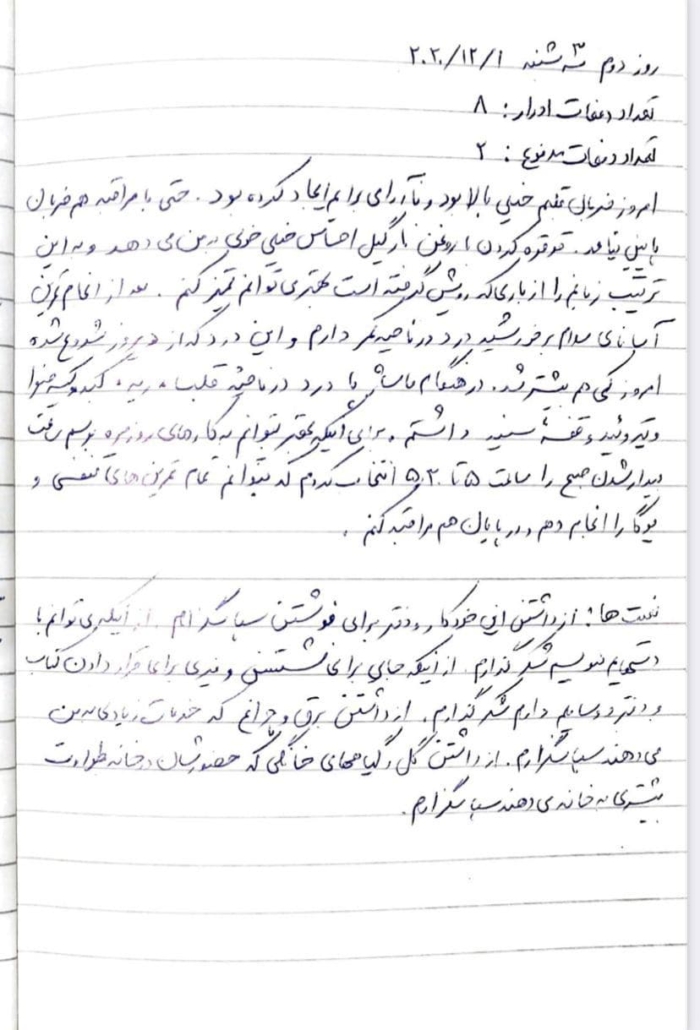 روز دوم سه شنبه ۲۰۲۰/۱۲/۱
تعداد دفعات ادرار: ۸
تعداد دفعات مدفوع: ۲
امروز ضربان قلبم خیلی بالا بود و ناآرامی برایم ایجاد کرده بود. حتی با مراقبه هم ضربان
پایین نیامد. قرقره کردن با روغن نارگیل احساس خیلی خوبی به من می دهد و به این
ترتیب زبانم را از باری که رویش گرفته است بهتر می توانم تمیز کنم. بعد از انجام تمرین
آساناي سلام بر خورشید درد در ناحیه کمر دارم و این درد که از دیروز شروع شده
امروز کمی هم بیشتر شد. در هنگام ماساژ با درد در ناحیه قلب، ریه، کبد و کیسه صفرا
و تیروئید و قفسهٔ سینه داشتم. برای اینکه بهتر بتوانم به کارهای روزمره برسم ساعت
بیدار شدن صبح را ساعت ۵ تا ۵،۳۰ انتخاب کردم که بتوانم تمام تمرین های تنفسی و
یوگا را انجام دهم و در پایان هم مراقبه کنم.
نعمت ها: از داشتن این خودکار و دفتر برای نوشتن سپاسگزارم. از اینکه می توانم با
دستهایم بنویسم شکرگذارم. از اینکه جایی برای نشستن و میزی برای قرار دادن کتاب
و دفتر و وسایلم دارم شکرگذارم. از داشتن برق و چراغ که خدمات زیادی به من
می دهند سپاسگزارم. از داشتن گل و گیاههای خانگی که حضورشان در خانه طراوت
بیشتری به خانه می دهند سپاسگزارم.